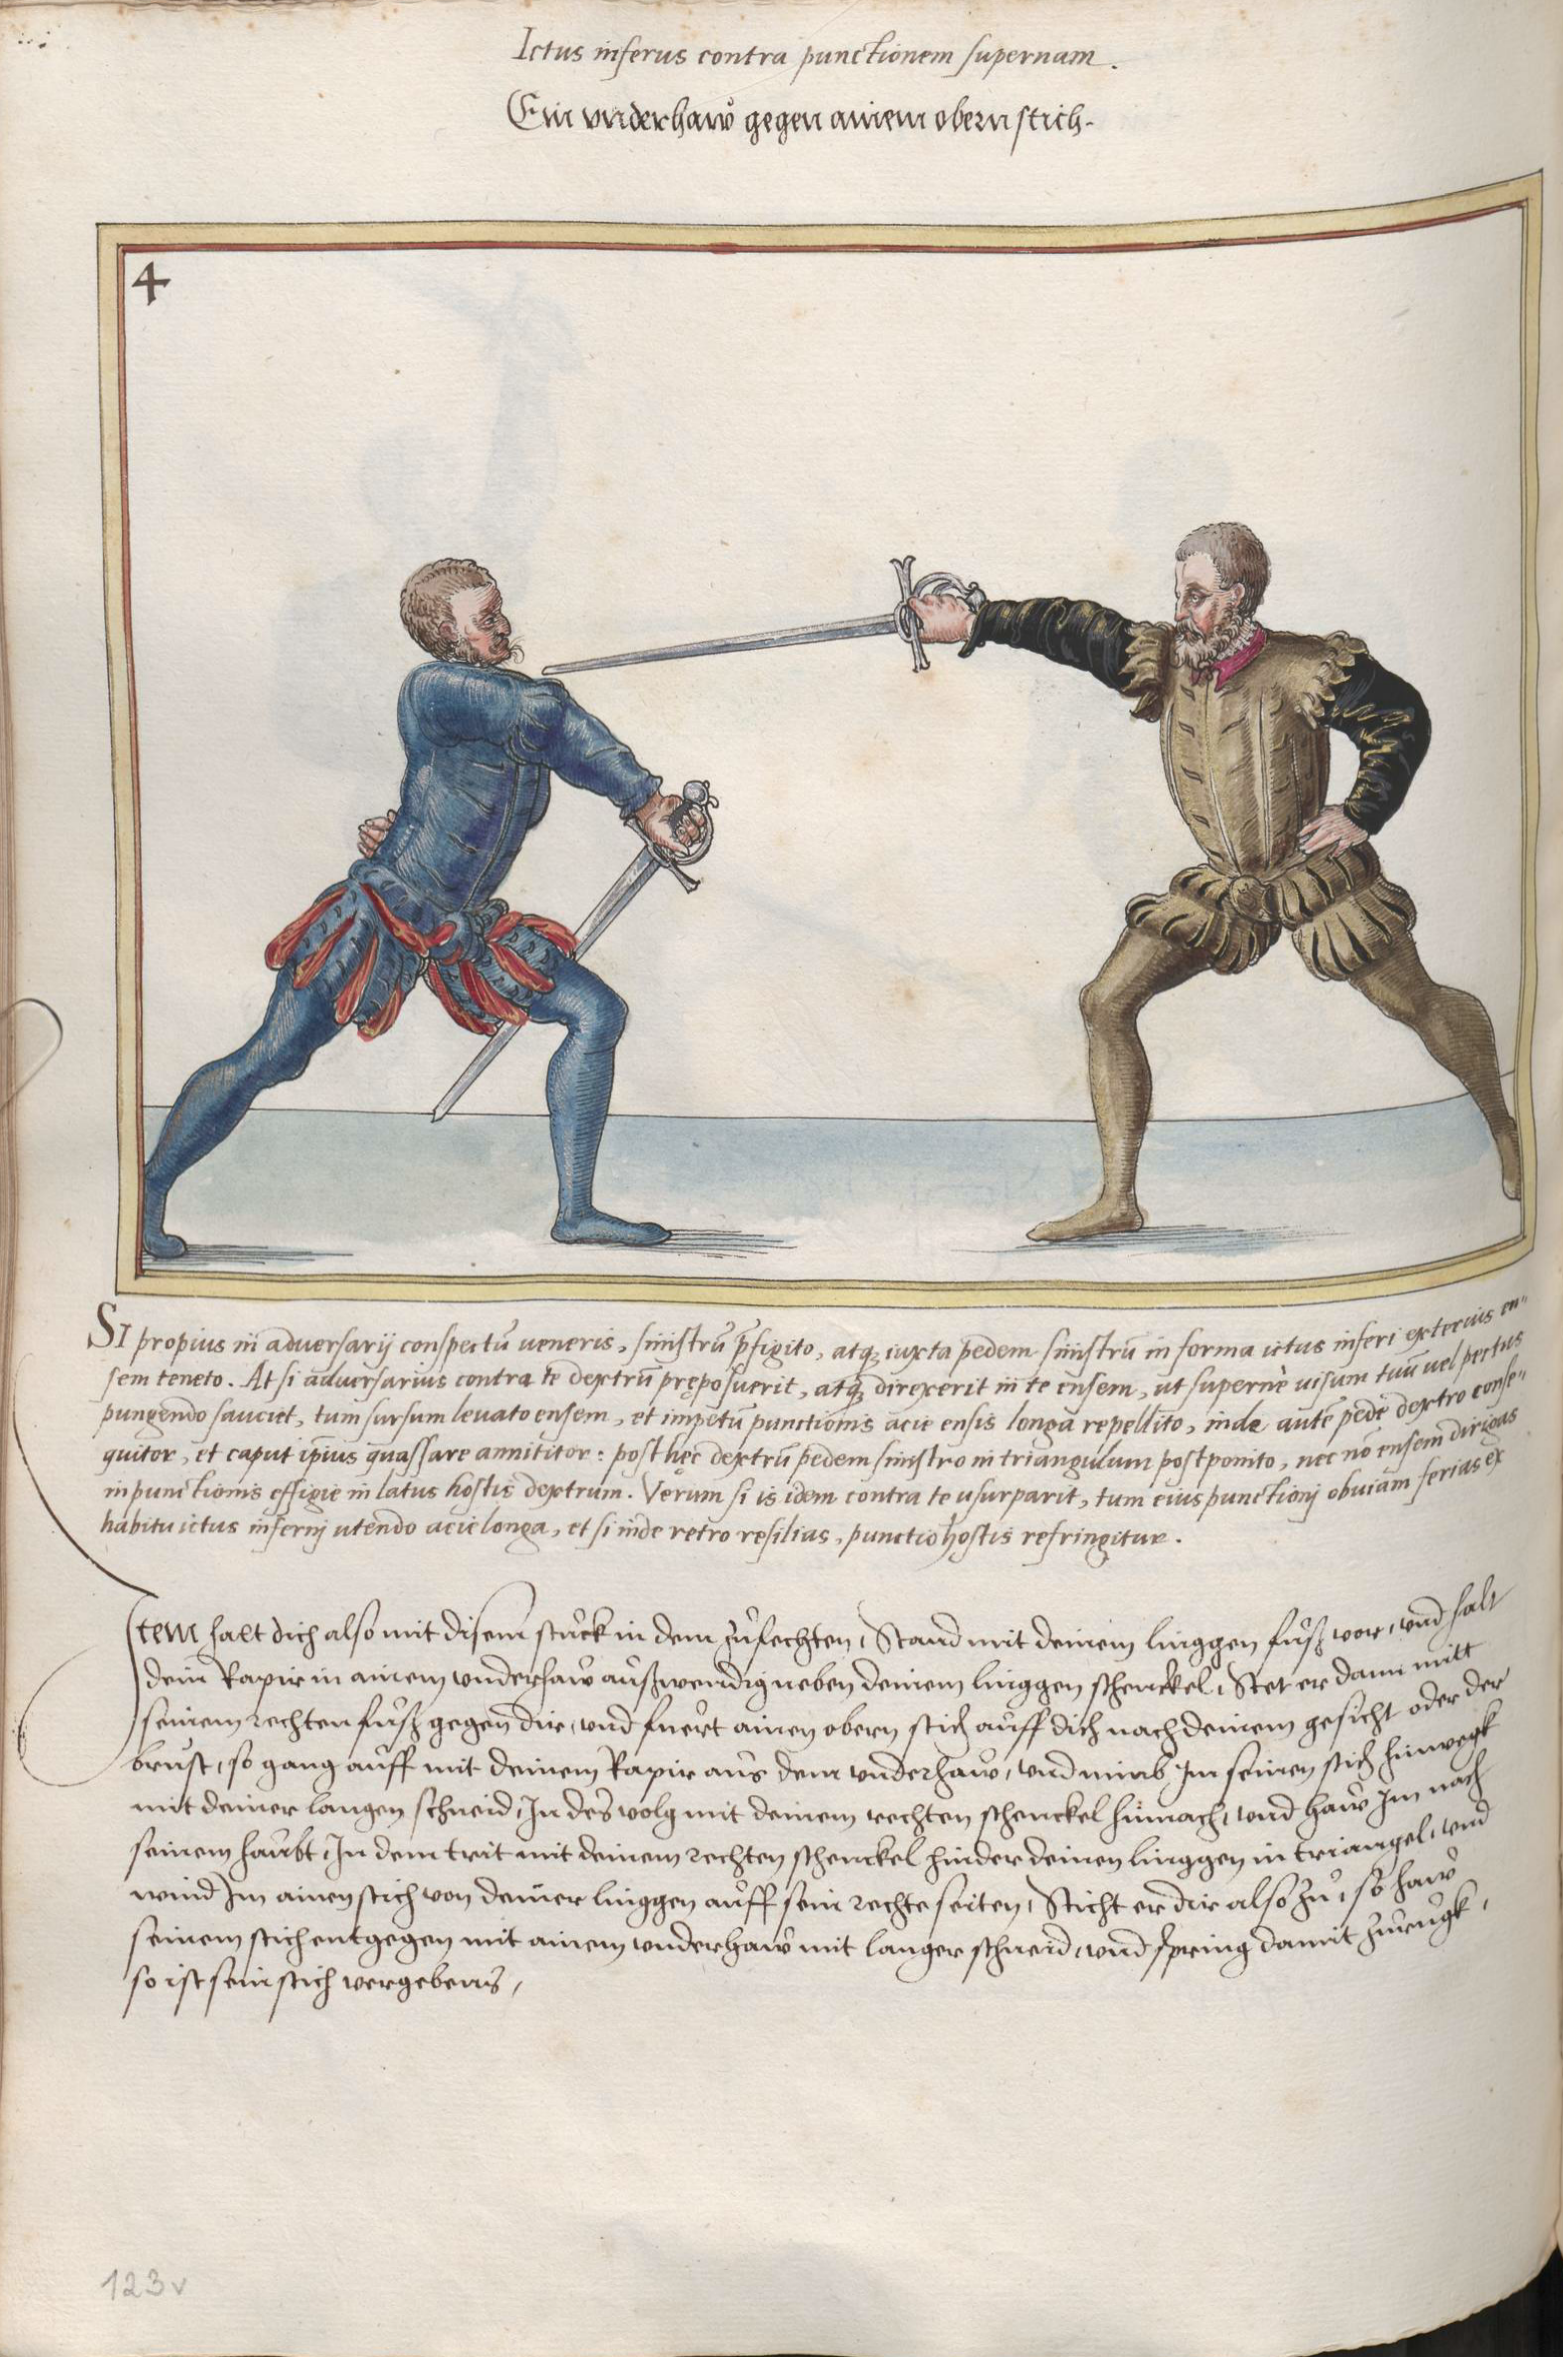 Ictus inferus contra punctionem supernam.
Ein vnderhaw gegen ainem obern stich.
4
SI propius in adversarij conspectū veneris, sinistrū p̄figito, atq̨ iuxta pedem sinistrū in forma ictus inferi exterius en„
sem teneto. At si adversarius contra te dextrū pręposuerit, atq̨ direxerit in te ensem, ut supernè visum tuū vel pectus
pungendo sauciet, tum sursum levato ensem, et impetū punctionis acie ensis longa repellito, inde autē pede dextro conse„
quitor, et caput ip̄ius quassare annititor: post hęc dextrū pedem sinistro in triangulum postponito, nec nō ensem dirigas
in punctionis effigie in latus hostis dextrum. Verum si is idem contra te usurparit, tum eius punctionj obuiam ferias ex
habitu ictus infernj utendo acie longa, et si inde retro resilias, punctio hostis refringitur.
Item halt dich also mit disem stuck in dem zůfechten, Stand mit deinem linggen fůß vor, vnd halt
dein Rapir in ainem vnderhaw außwendig neben deinem linggen schenckel, Stet er dann mitt
seinem rechten fůß gegen dir, vnd fuert ainen obern stich auff dich nach deinem gesicht oder der
brust, so gang auff mit deinem Rapir aus dem vnderhaw, vnd nimb Im seinen stich hinwegk
mit deiner langen schneid, In des volg mit deinem rechten schenckel hinnach, vnd haw Im nach
seinem haubt, In dem trit mit deinem rechten schenckel hinder deinen linggen in triangel, vnd
wind Im ainen stich von deiner linggen auff sein rechte seiten, Sticht er dir also zů, so haw
seinem stich entgegen mit ainem vnderhaw mit langer schneid, vnd spring damit zurugk,
so ist sein stich vergebens,
123v